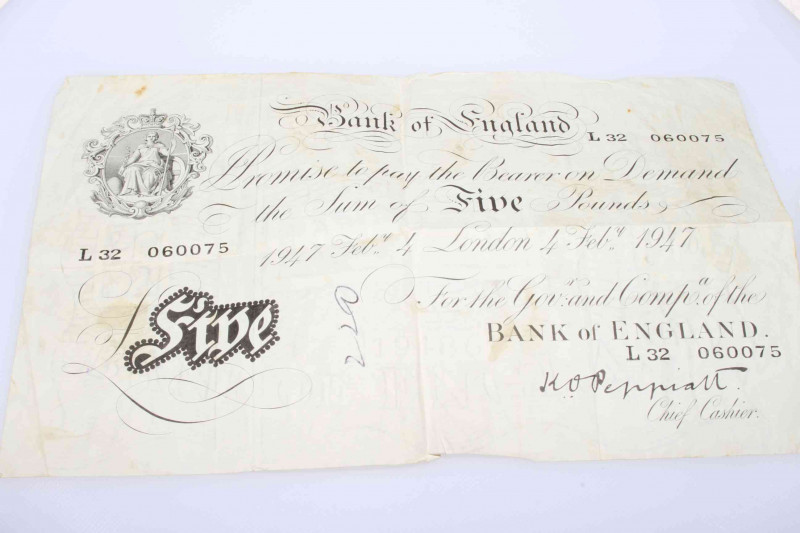 Bank of England
L 32 060075
I Promise to pay the Bearer on Demand
the Sum of Five Pounds
L 32 060075
1947 Feby. 4 London 4 Feby. 1947
For the Govr. and Compa. of the
BANK of ENGLAND.
L 32 060075
£ Five
220
K O Peppiatt.
Chief Cashier.